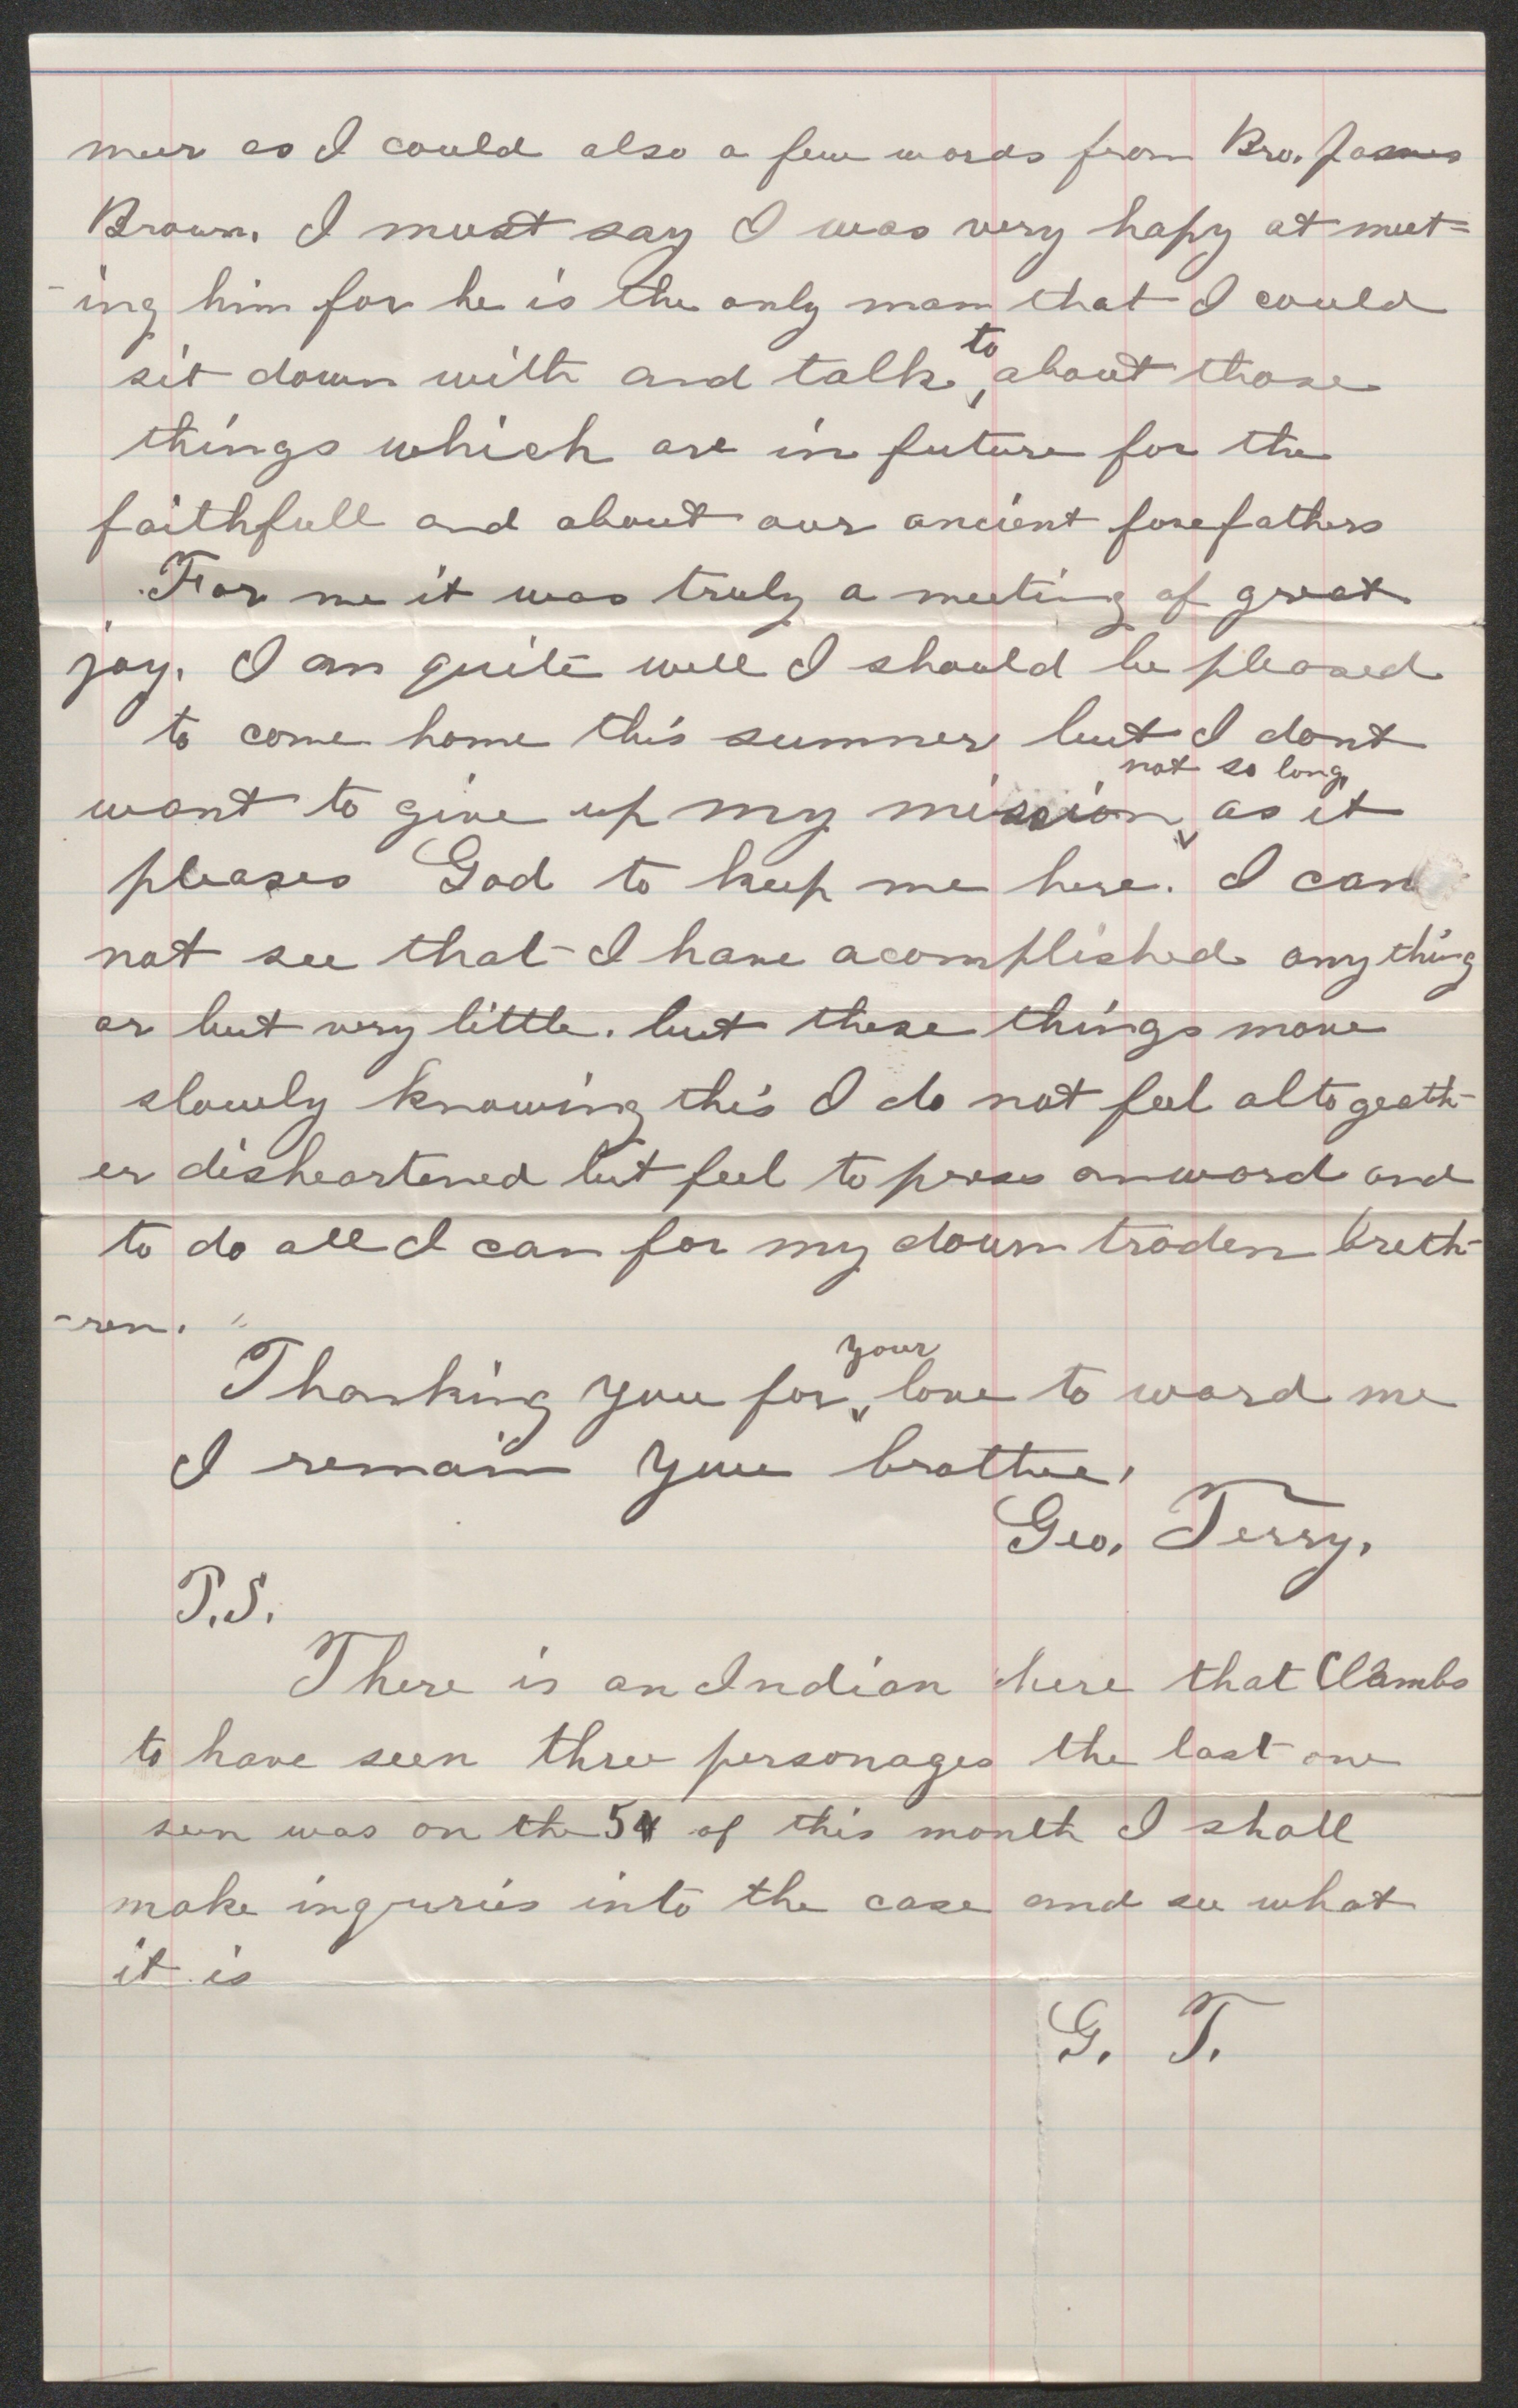 mer as I could also a few words from Bro. James
Brown. I must say I was very hapy at meet=
-ing him for he is the only man that I could
sit down with and talk to about those
things which are in future for the
faithfull and about our ancient forefathers
For me it was truly a meeting of great
joy. I am quite well I should be pleased
to come home this summer but I dont
want to give up my mission not so long as it
pleases God to keep me here. I can
not see that I have acomplished anything
or but very little. but these things move
slowly knowing this I do not feel altogeath-
er disheartened but feel to press onward and
to do all I can for my down troden breth-
-ren.
Thanking you for your love to ward me
I remain your brother.
Geo. Terry.
P.S.
There is an Indian here that Clambs
to have seen three personages the last one
seen was on the 5 of this month I shall
make inquries into the case and see what
it is
G. T.